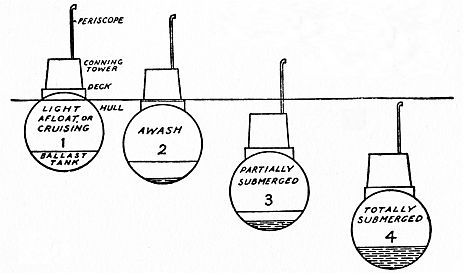 PERISCOPE
CONNING
TOWER
DECK
HULL
LIGHT
AFLOAT, OR
CRUISING
1
BALLAST
TANK
AWASH
2
PARTIALLY
SUBMERGED
3
TOTALLY
SUBMERGED
4